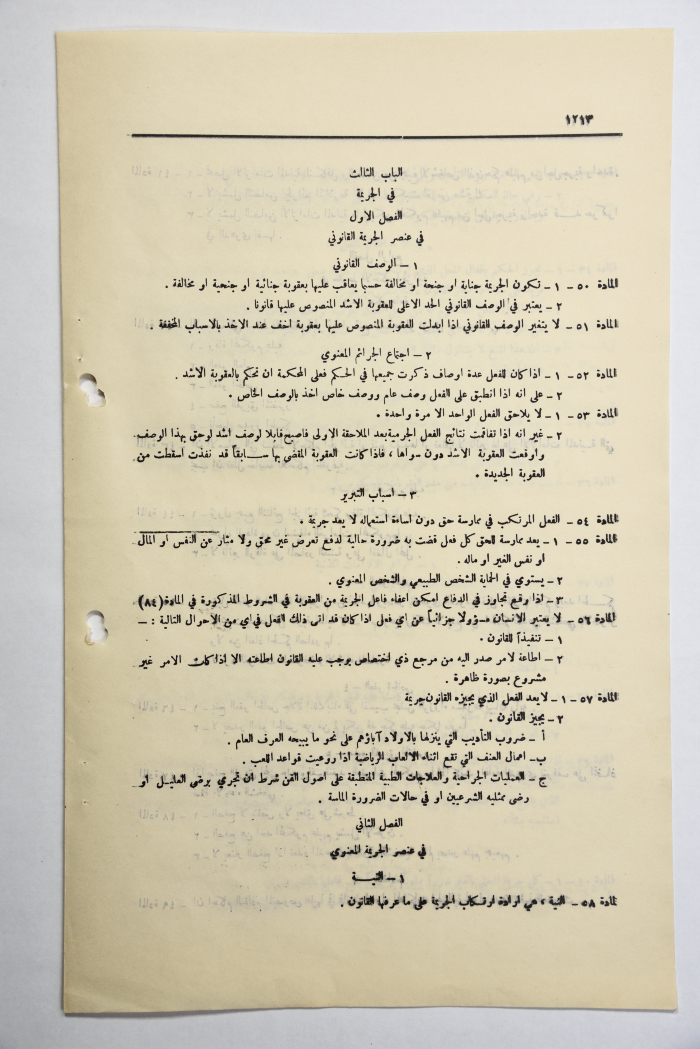 ١٢١٣
الباب الثالث
في الجريمة
الفصل الاول
في عنصر الجريمة القانوني
١ - الوصف القانوني
المادة ٥٠ - ١ - تكون الجريمة جناية او جنحة او مخالفة حسبما يعاقب عليها بعقوبة جنائية او جنحية او مخالفة .
٢ - يعتبر في الوصف القانوني الحد الاعلى للعقوبة الاشد المنصوص عليها قانونا .
المادة ٥١ - لا يتغير الوصف القانوني اذا ابدلت العقوبة المنصوص عليها بعقوبة اخف عند الاخذ بالاسباب المخففة .
٢ - اجتماع الجرائم المعنوي
المادة ٥٢ - ١ - اذا كان للفعل عدة اوصاف ذكرت جميعها في الحكم فعلى المحكمة ان تحكم بالعقوبة الاشد .
٢ - على انه اذا انطبق على الفعل وصف عام ووصف خاص اخذ بالوصف الخاص .
المادة ٥٣ - ١ - لا يلاحق الفعل الواحد الا مرة واحدة .
٢ - غير انه اذا تفاقمت نتائج الفعل الجرمية بعد الملاحقة الاولى فاصبح قابلا لوصف اشد لوحق بهذا الوصف
واوقعت العقوبة الاشد دون سواها ، فاذا كانت العقوبة المقضي بها سابقاً قد نفذت اسقطت من
العقوبة الجديدة .
٣ - اسباب التبرير
المادة ٥٤ - الفعل المرتكب في ممارسة حق دون اساءة استعماله لا يعد جريمة .
المادة ٥٥ - ١ - يعد ممارسة للحق كل فعل قضت به ضرورة حالية لدفع تعرض غير محق ولا مثار عن النفس او المال
او نفس الغير او ماله .
٢ - يستوي في الحماية الشخص الطبيعي والشخص المعنوي .
٣ - اذا وقع تجاوز في الدفاع امكن اعفاء فاعل الجريمة من العقوبة في الشروط المذكورة في المادة (٨٤)
المادة ٥٦ - لا يعتبر الانسان مسؤولا جزائياً عن اي فعل اذا كان قد اتى ذلك الفعل في اي من الاحوال التالية : -
١ - تنفيذاً للقانون .
٢ - اطاعة لامر صدر اليه من مرجع ذي اختصاص يوجب عليه القانون اطاعته الا اذا كان الامر غير
مشروع بصورة ظاهرة .
المادة ٥٧ - ١ - لا يعد الفعل الذي يجيزه القانون جريمة
٢ - يجيز القانون .
أ - ضروب التأديب التي ينزلها بالاولاد آباؤهم على نحو ما يبيحه العرف العام .
ب - اعمال العنف التي تقع اثناء الالعاب الرياضية اذا روعيت قواعد اللعب .
ج - العمليات الجراحية والعلاجات الطبية المنطبقة على اصول الفن شرط ان تجري برضى العليل او
رضى ممثليه الشرعيين او في حالات الضرورة الماسة .
الفصل الثاني
في عنصر الجريمة المعنوي
١ - النية
لمادة ٥٨ - النية ، هي ارادة ارتكاب الجريمة على ما عرفها القانون .